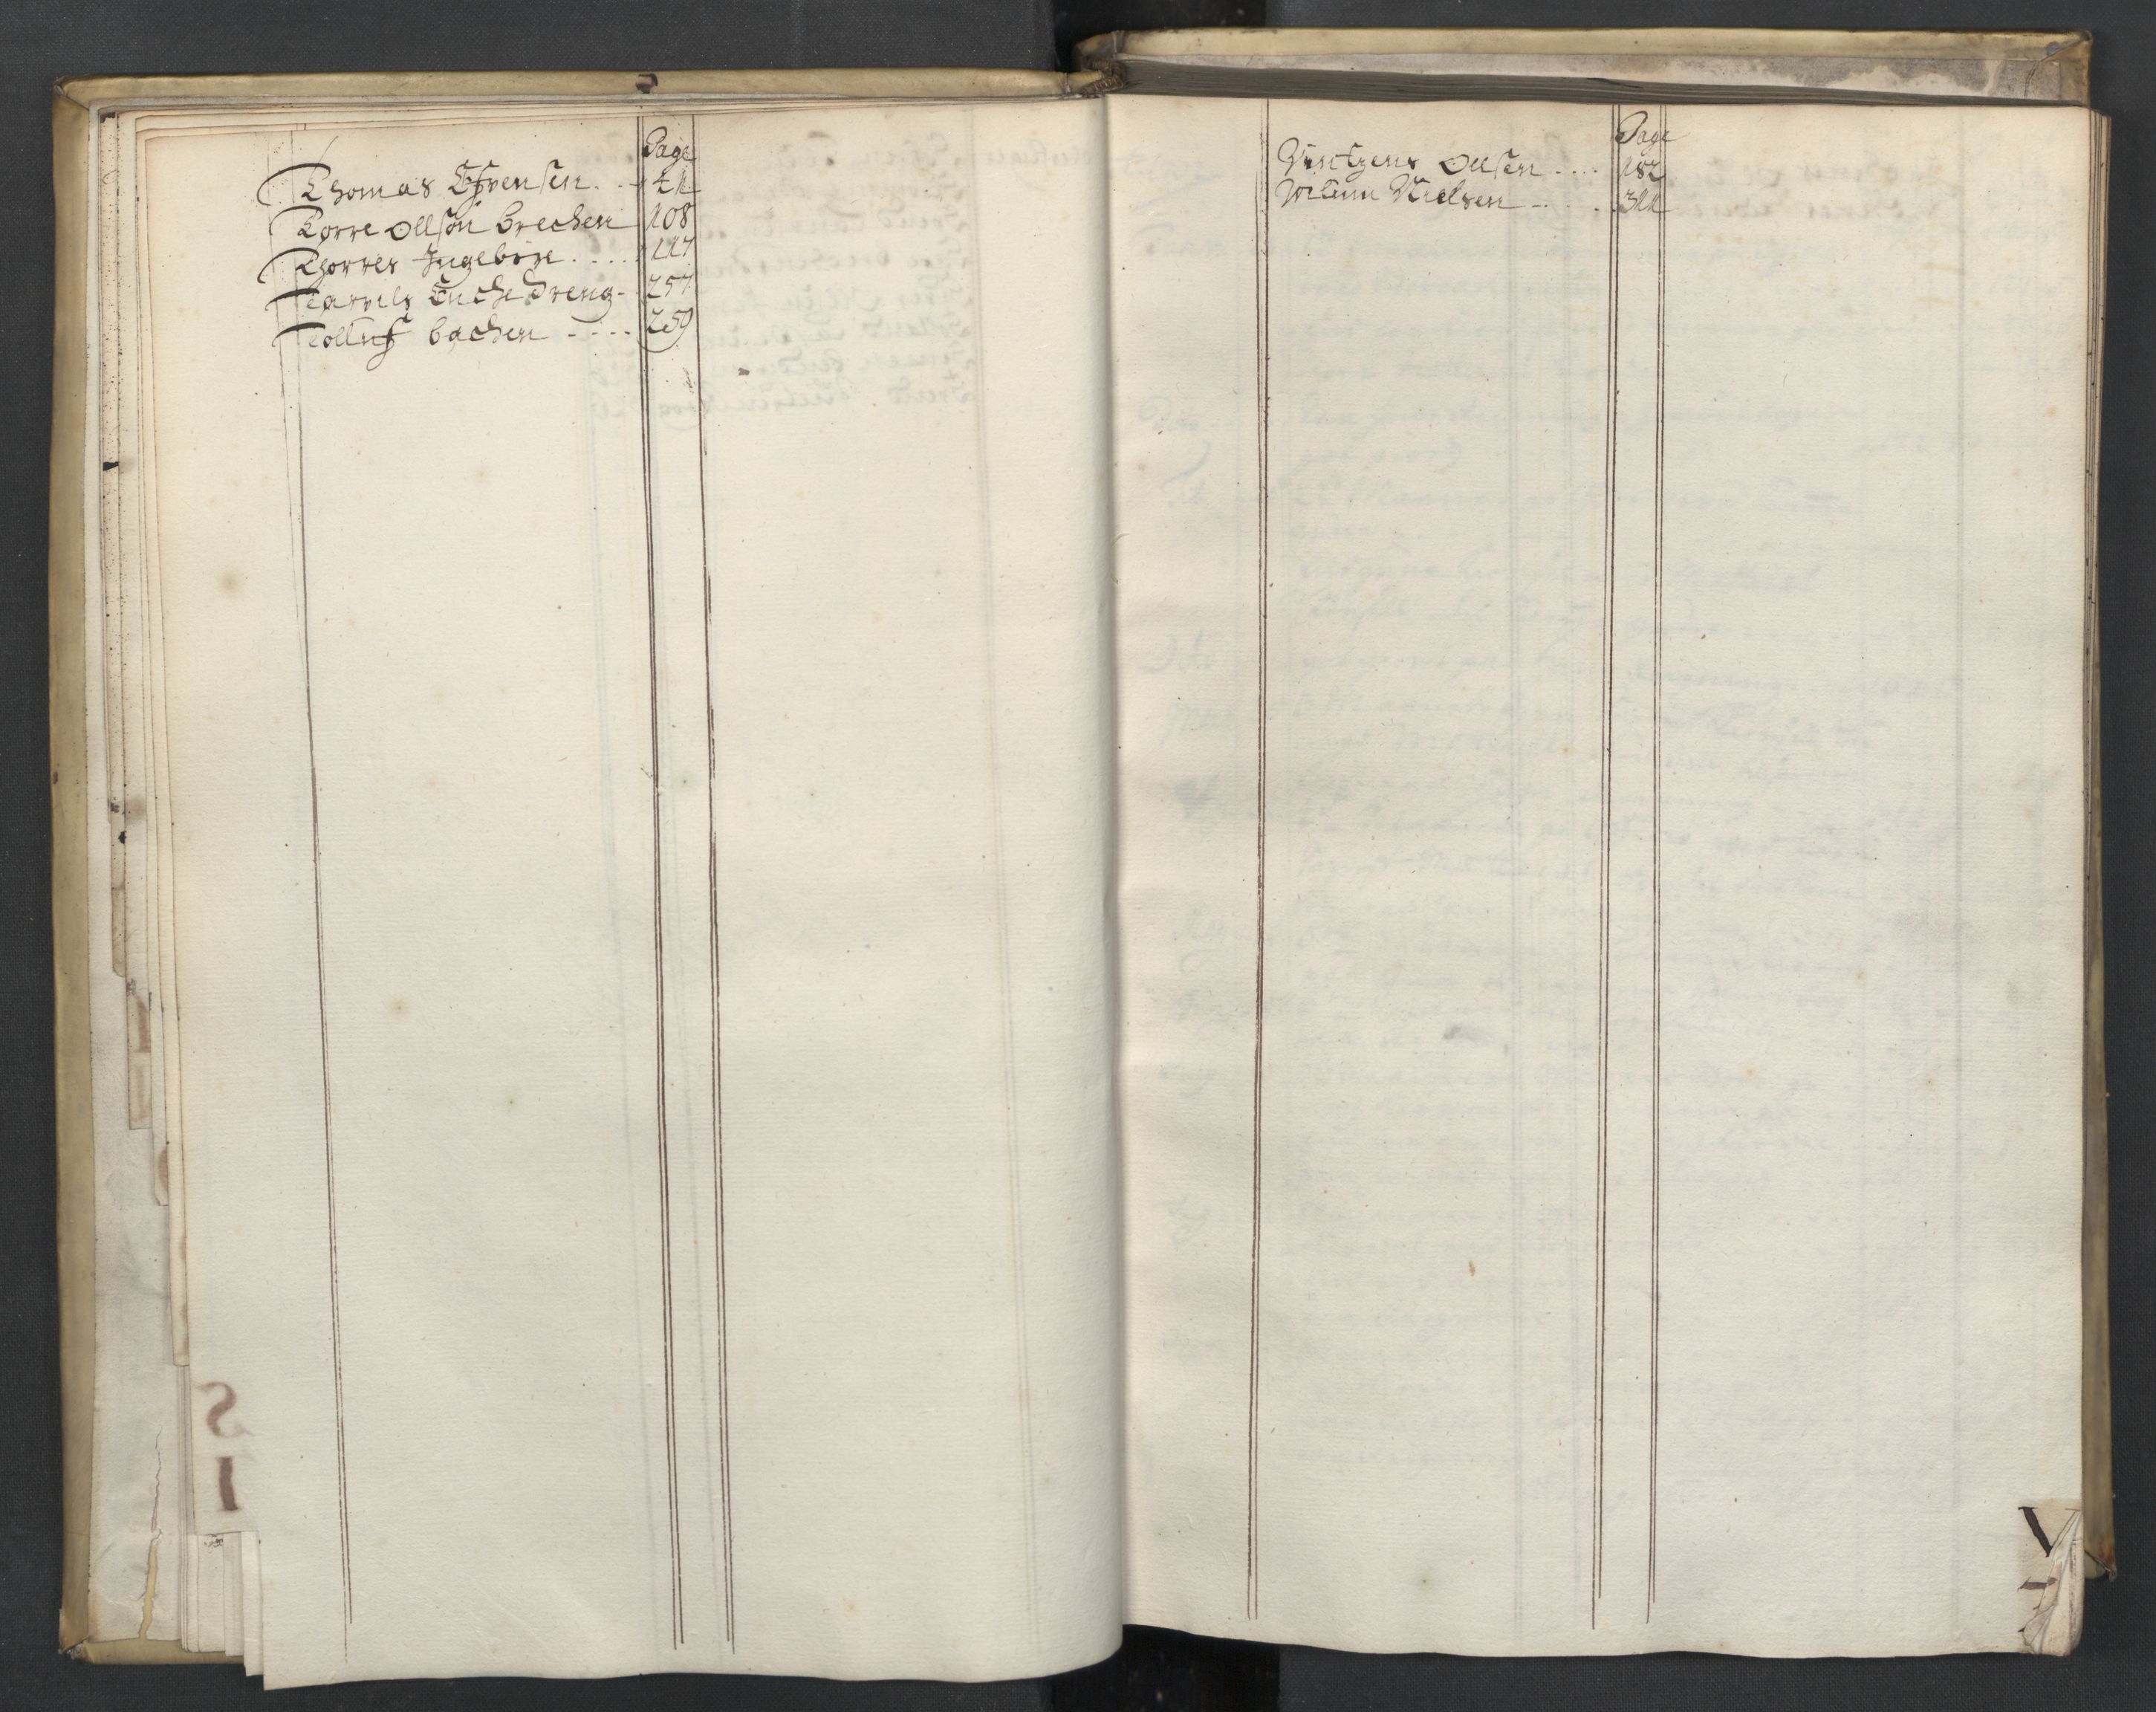 Page
Thomas Ifvensen . . 41
Torre Ollson brechen 108
Thorres Ingebore . . . . 117
Tarrils Encke dreng - 257
Tolluf bachen - . . . . 259
Page
Ollsen . . . . 182
Willum Nielsen - - . . . 311
S
I
V